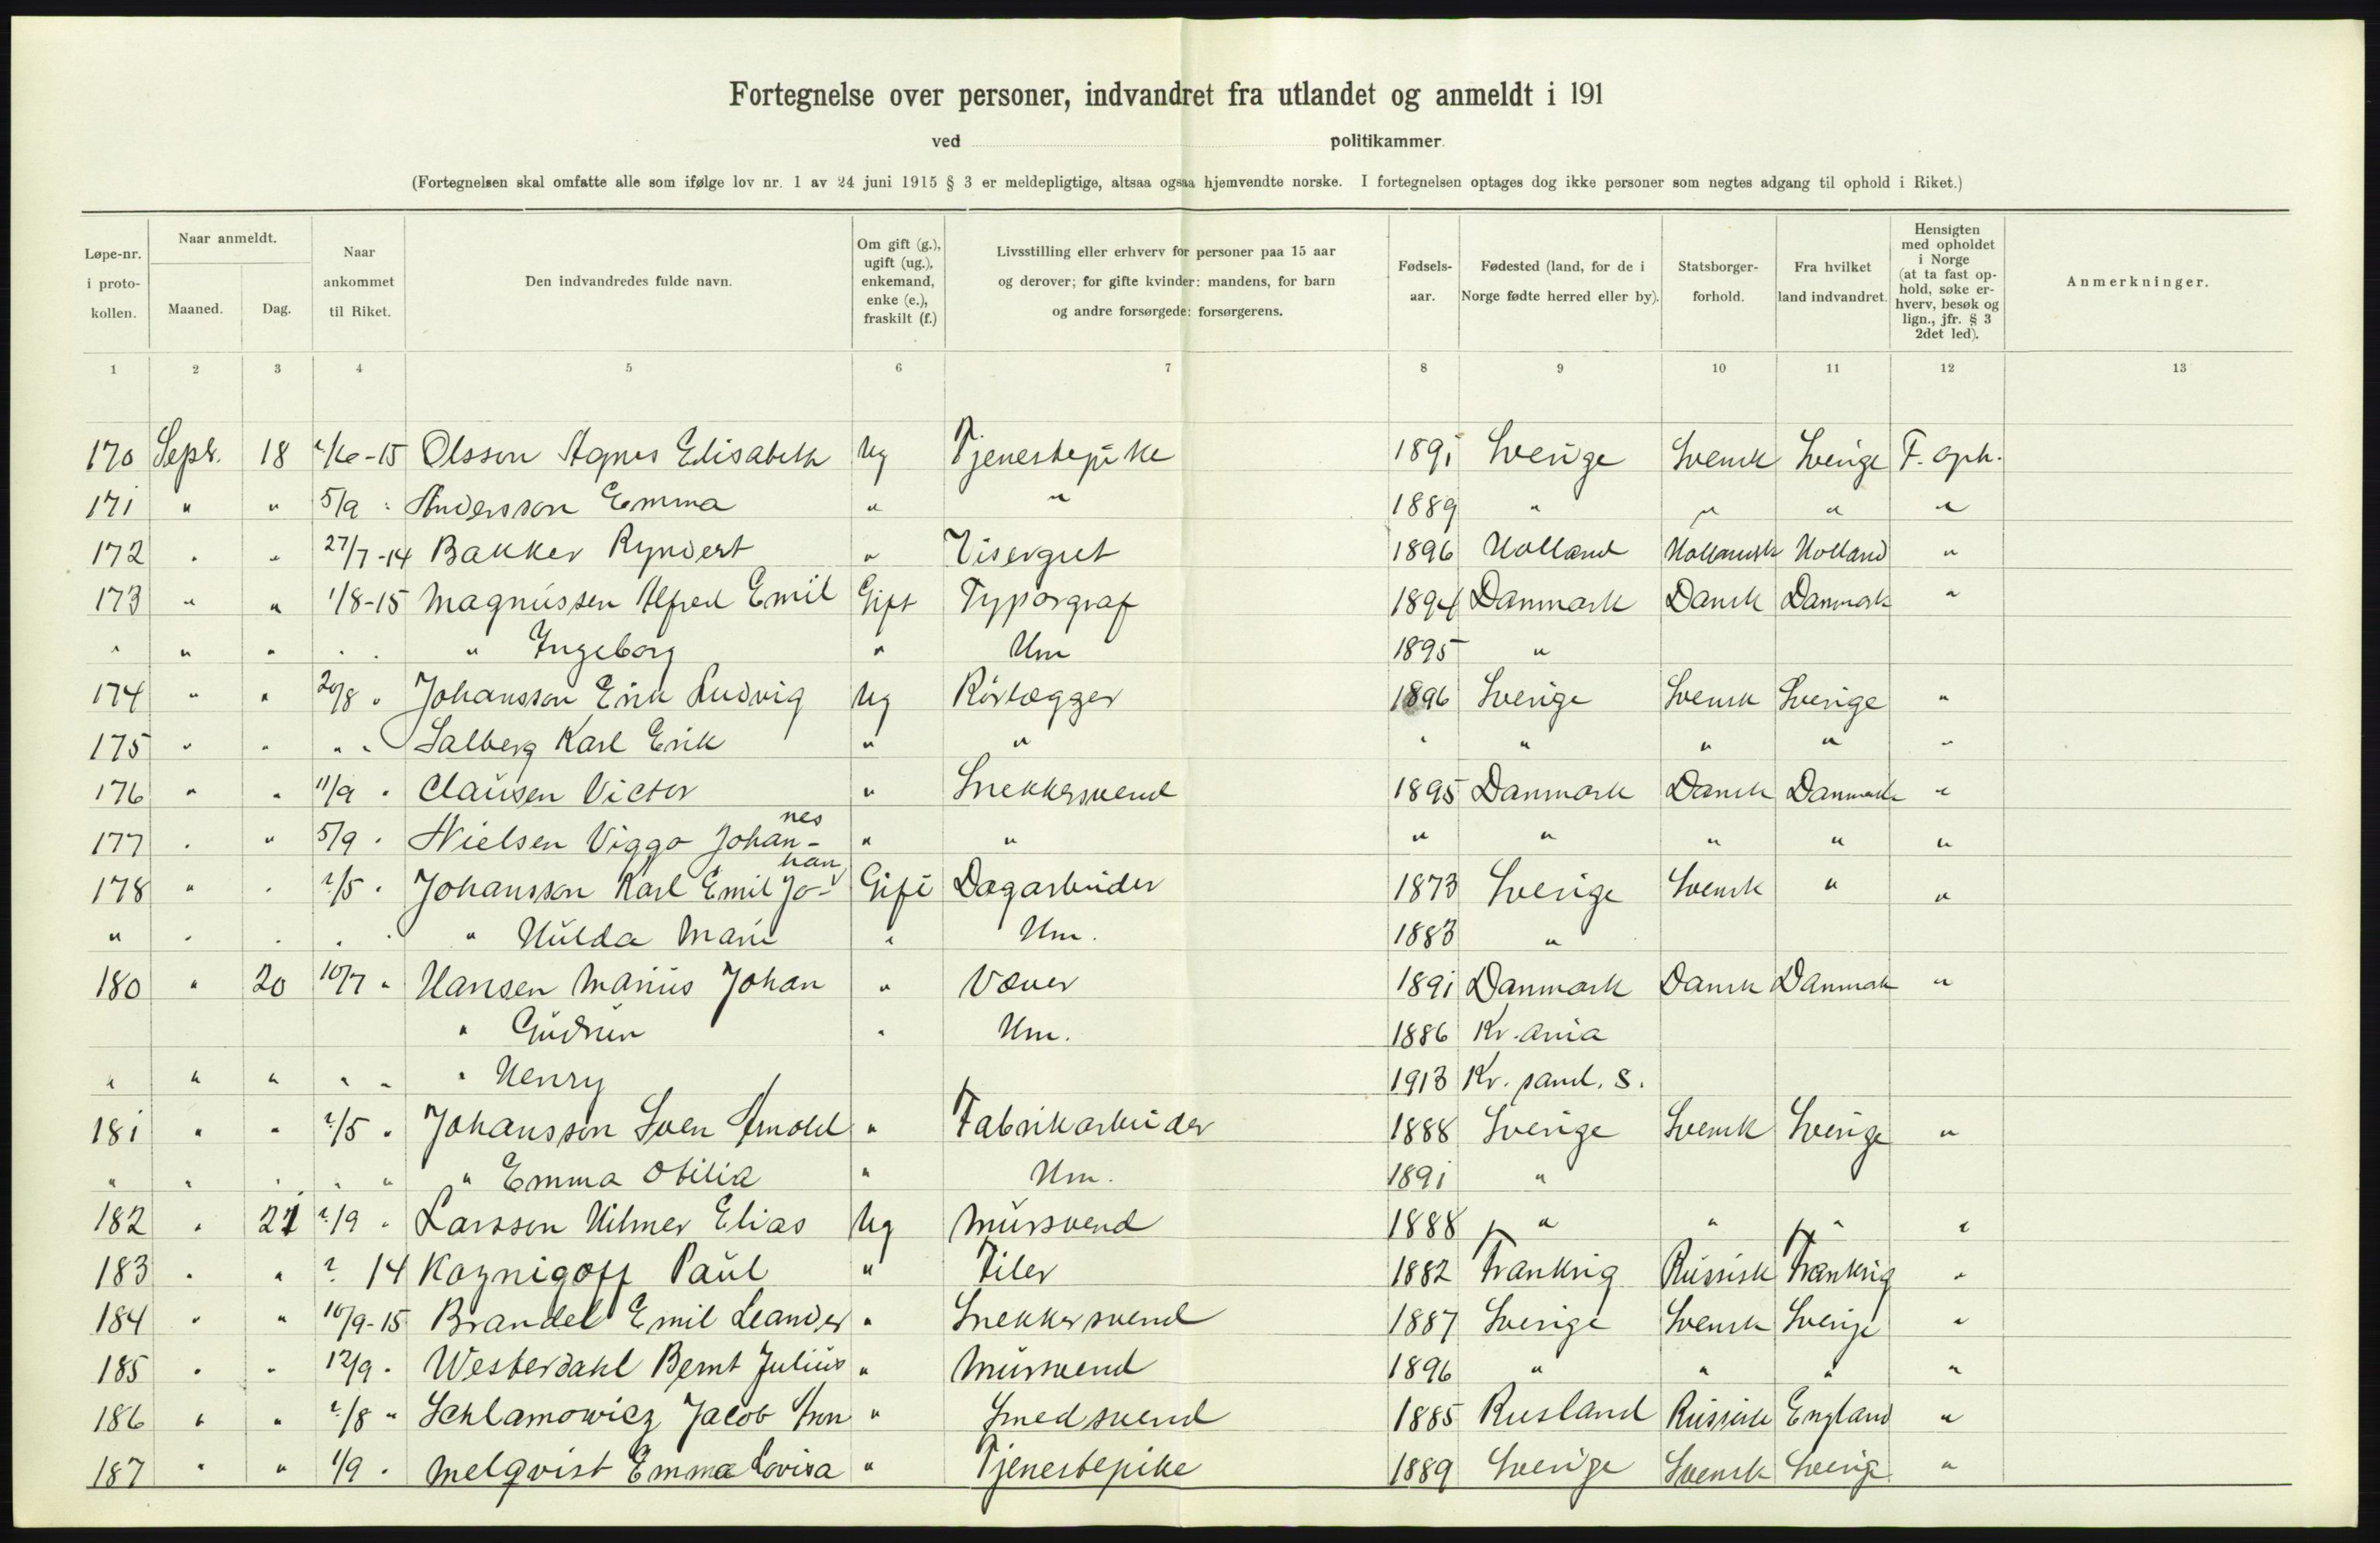 Fortegnelse over personer, indvandret fra utlandet og anmeldt i 191
ved politikammer.
(Fortegnelsen skal omfatte alle som ifølge lov nr. 1 av 24 juni 1915 § 3 er meldepligtige, altsaa ogsaa hjemvendte norske. I fortegnelsen optages dog ikke personer som negtes adgang til ophold i Riket.)
Løpe-nr. i proto- kollen.
Naar anmeldt.
Maaned.
Dag.
Naar ankommet til Riket.
Den indvandredes fulde navn.
Om gift (g.), ugift (ug.), enkemand, enke (e.), fraskilt (f.)
Livsstilling eller erhverv for personer paa 15 aar og derover; for gifte kvinder: mandens, for barn og andre forsørgede: forsørgerens.
Fødsels- aar.
Fødested (land, for de i Norge fødte herred eller by).
Statsborger- forhold.
Fra hvilket land indvandret.
Hensigten med opholdet i Norge (at ta fast op- hold, søke er- hverv, besøk og lign., jfr. § 3 2det led).
Anmerkninger.
1 2 3 4 5 6 7 8 9 10 11 12 13
170 Septr. 18 Olsson Agnes Elisabeth Ug Tjenestepike 1891 Sverige Svensk Sverige F. oph.
171 " " 5/9 " Andersson Emma " " 1889 " " " "
172 " " 27/7-14 Bakker Ryndert " Visergut 1896 Holland Hollandsk Holland "
173 " " 1/8-15 Magnussen Alfred Emil Gift Typograf 1894 Danmark Dansk Danmark "
" " " " " " Ingeborg " Hm 1895 "
174 " " 20/8 " Johansson Erik Ludvig Ug Rørlægger 1896 Sverige Svensk Sverige "
175 " " " " Salberg Karl Erik " " " " " " "
176 " " 11/9 " Clausen Victor " Snekkersvend 1895 Danmark Dansk Danmark "
177 " " 5/9 " Nielsen Viggo Johan-nes " " " " " " "
178 " " ?/5 " Johansson Karl Emil Jo-han Gift Dagarbeider 1873 Sverige Svensk " "
" " " " " " Hulda Marie " Hm. 1883 "
180 " 20 10/7 " Hansen Marius Johan " Væver 1891 Danmark Dansk Danmark "
" Gudrun " Hm. 1886 Kr.ania
" " " " " " Henry 1913 Kr. sand. S.
181 " " ?/5 " Johansson Sven Arnold " Fabrikarbeider 1888 Sverige Svensk Sverige "
" " " " " " Emma Otilia " Hm. 1891 "
182 " 21 ?/9 " Larsson Hilmer Elias Ug Mursvend 1888 " " " "
183 " " ? 14 Koznigoff Paul " Filer 1882 Frankrig Russisk Frankrig "
184 " " 10/9-15 Brandel Emil Leander " Snekkersvend 1887 Sverige Svensk Sverige "
185 " " 12/9 " Westerdahl Bernt Julius " Mursvend 1896 " " " "
186 " " ?/8 " Schlamowicz Jacob " Smedsvend 1885 Rusland Russisk England "
187 " " 1/9 " Melqvist Emma Lovisa " Tjenestepike 1889 Sverige Svensk Sverige "